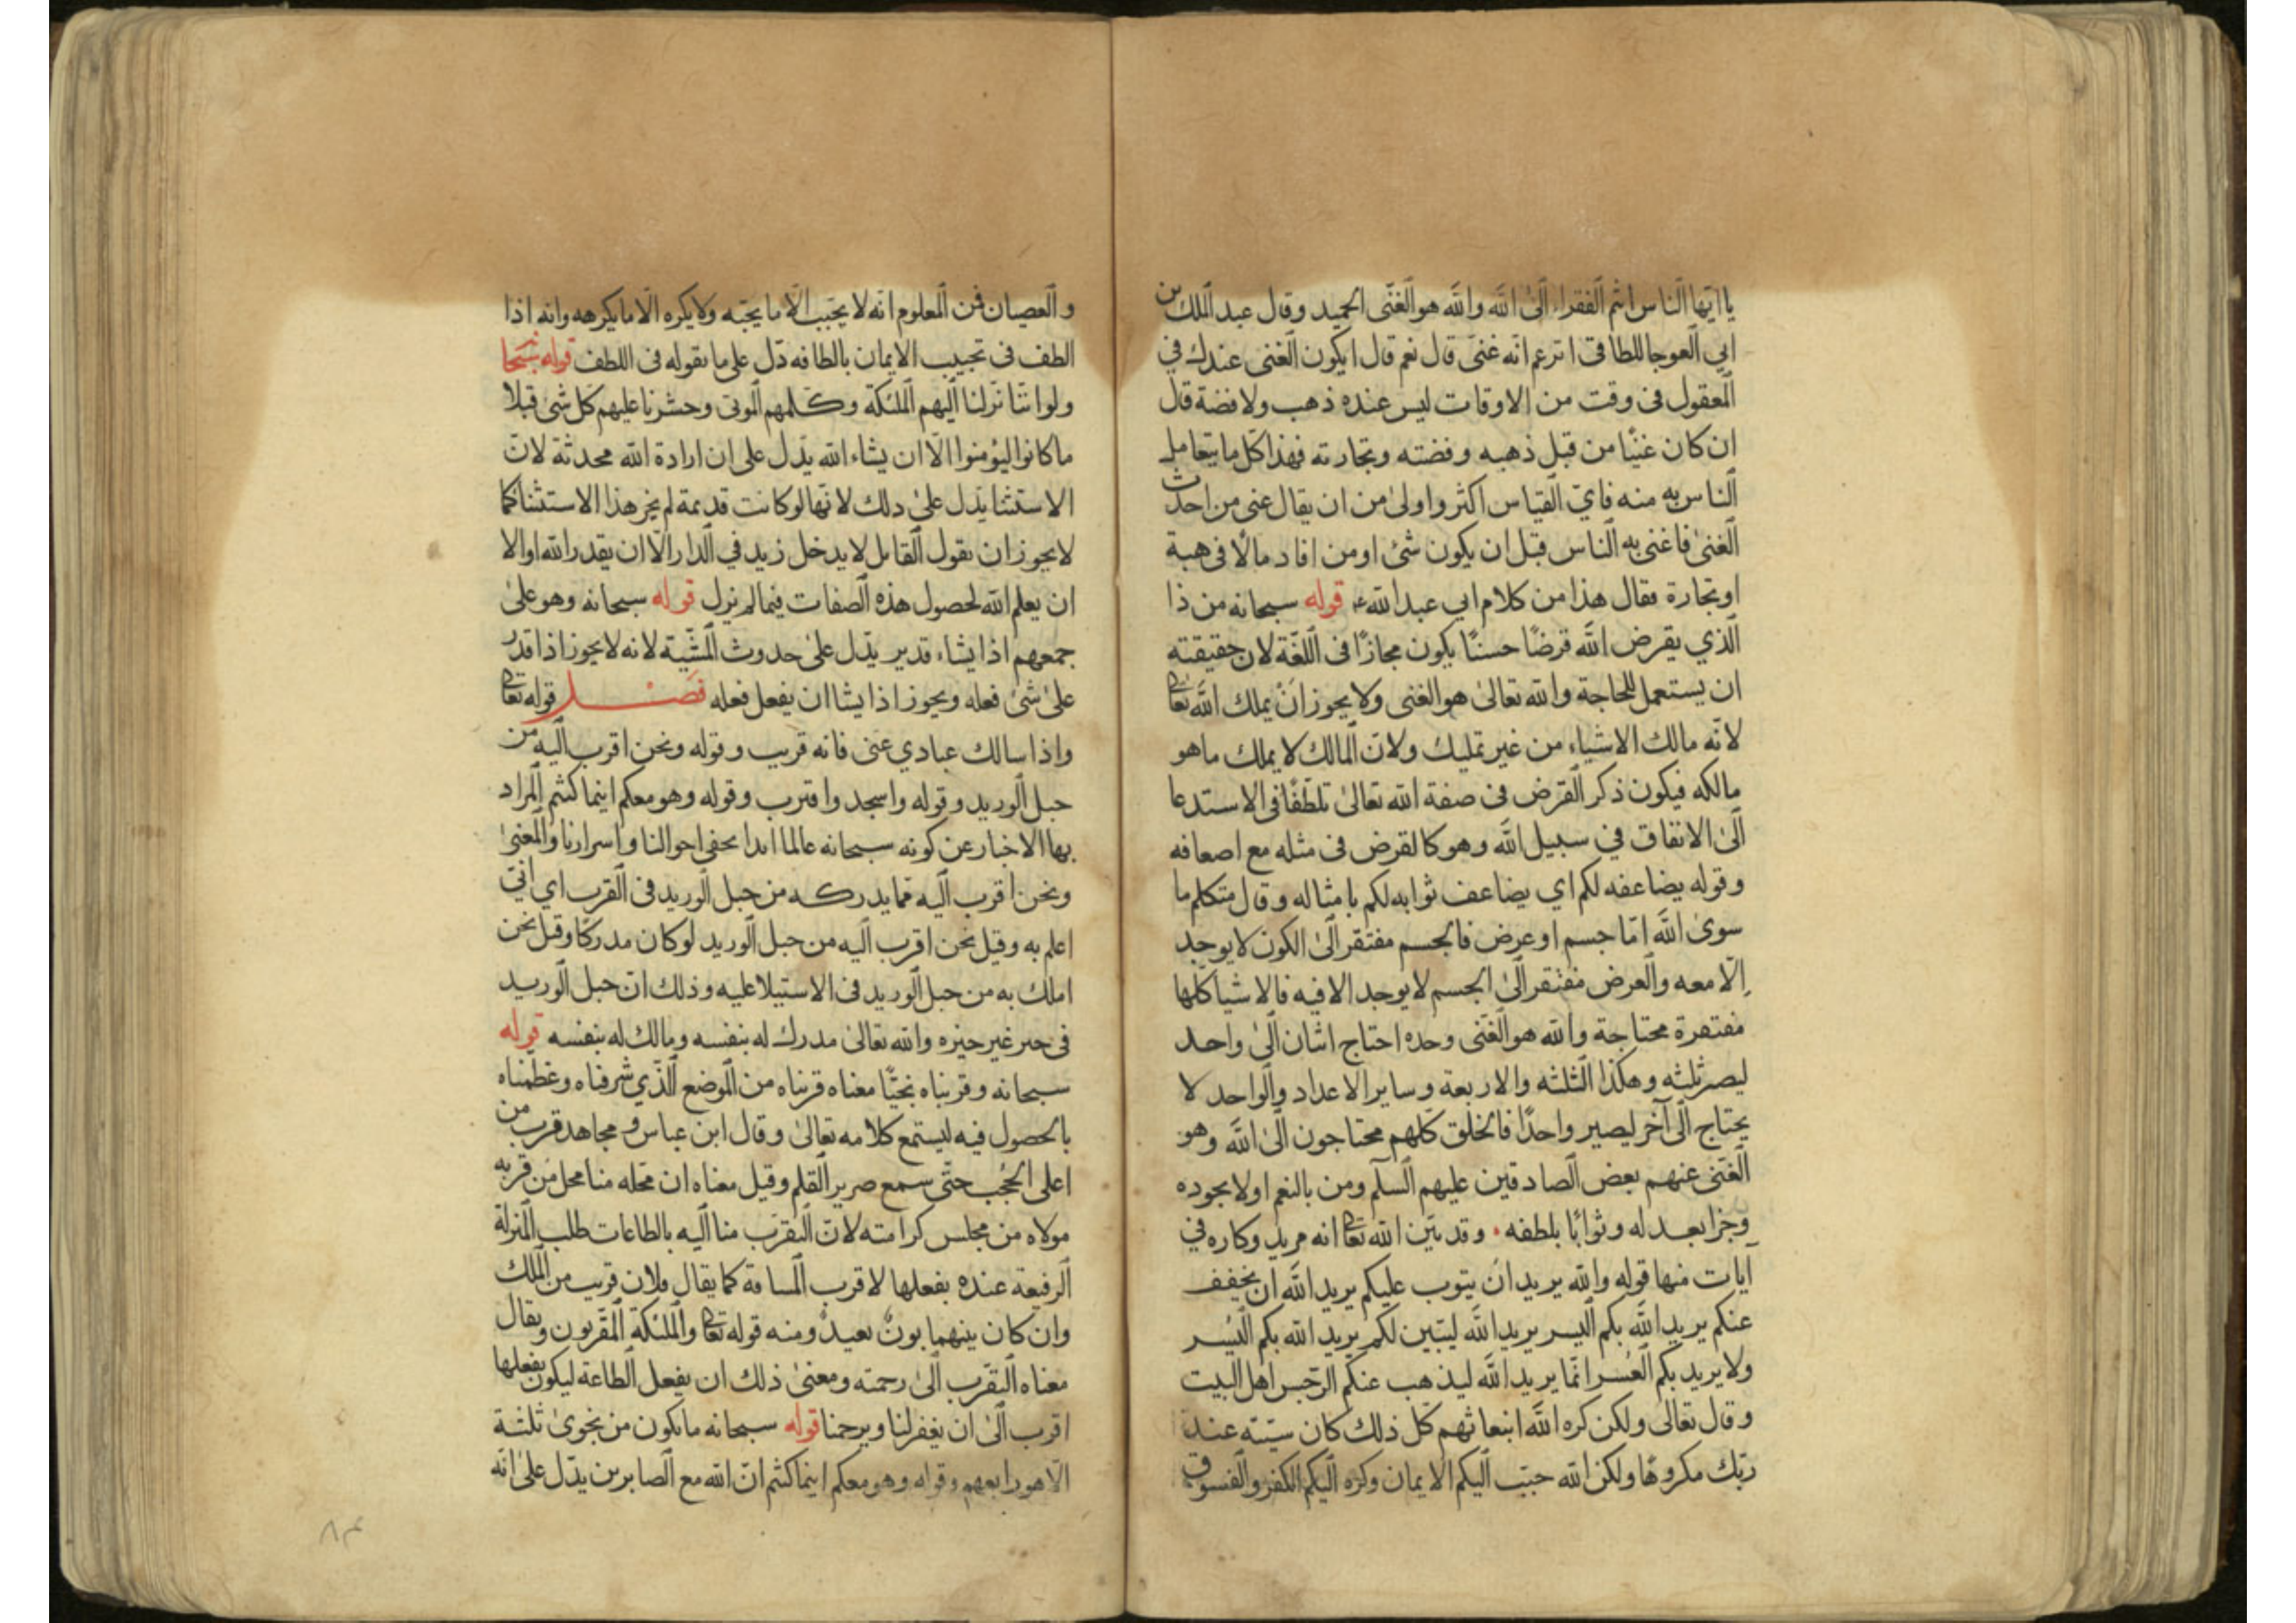 يا ايّها الناس انتم الفقراء الى الله والله هو الغنى الحميد وقال عبد الملك بن
ابي العوجا للطاقى اتزعم انّه غنىّ قال نعم قال ايكون الغنى عندك في
المعقول فى وقت من الاوقات ليس عنده ذهب ولا فضة قال
ان كان غنيّا من قبل ذهبه وفضته وتجارته فهذا كل ما يتعامل
الناس به منه فاىّ القياس اكثر واولى من ان يقال غنى من احدث
الغنى فاغنى به الناس قبل ان يكون شئ او من افاد مالًا فى هبة
او تجارة فقال هذا من كلام ابي عبد الله ع قوله سبحانه من ذا
الذي يقرض الله قرضًا حسنًا يكون مجازًا فى اللغة لان حقيقته
ان يستعمل للحاجة والله تعالى هو الغنى ولا يجوز ان يملك الله تعا
لانّه مالك الاشياء من غير تمليك ولانّ المالك لا يملك ما هو
مالكه فيكون ذكر القرض فى صفة الله تعالى تلطّفًا فى الاستدعا
الى الانفاق في سبيل الله وهو كالقرض فى مثله مع اصعافه
وقوله يضاعفه لكم اي يضاعف ثوابه لكم بامثاله وقال متكلم ما
سوى الله امّا جسم او عرض فالجسم مفتقر الى الكون لا يوجد
الّا معه والعرض مفتقر الى الجسم لا يوجد الا فيه فالاشيا كلّها
مفتقرة محتاجة والله هو الغنى وحده احتاج اثنان الى واحد
ليصير ثلثه وهكذا الثلثه والاربعة وساير الاعداد والواحد لا
يحتاج الى آخر ليصير واحدًا فالخلق كلّهم محتاجون الى الله وهو
الغنى عنهم بعض الصادقين عليهم السلم ومن بالنعم اولا بجوده
وجزا بعدله وثوابًا بلطفه وقد بيّن الله تعا انه مريد وكاره في
آيات منها قوله والله يريد ان يتوب عليكم يريد الله ان يخفف
عنكم يريد الله بكم اليسر يريد الله ليبين لكم يريد الله بكم اليُسر
ولا يريد بكم العُسر انّما يريد الله ليذهب عنكم الرّجس اهل البيت
وقال تعالى ولكن كره الله انبعاثهم كل ذلك كان سيّئه عند
ربّك مكروهًا ولكن الله حبّب اليكم الايمان وكرّه اليكم الكفر والفسوق
والعصيان فمن المعلوم انّه لا يحبّب الّا ما يحبّه ولا يكره الّا ما يكرهه وانه اذا
الطف فى تحبيب الايمان بالطافه دّل على ما نقوله فى اللطف قوله سبحا
ولو اننّا نزلنا اليهم الملئكة وكلّمهم الموتى وحشرنا عليهم كل شئ قبلا
ما كانوا ليؤمنوا الّا ان يشاء الله يدّل على ان ارادة الله محدثة لانّ
الاستثنا يدّل على ذلك لانّها لو كانت قديمة لم يجز هذا الاستثنا كما
لا يجوز ان يقول القايل لا يدخل زيد في الدار الّا ان يقدر الله او الا
ان يعلم الله لحصول هذه الصفات فيما لم نزل قوله سبحانه وهو على
جمعهم اذا يشاء قدير يدّل على حدوث المشيّة لانه لا يجوز اذا قدر
على شئ فعله ويجوز اذا يشا ان يفعل فعله فصل قوله تعا
واذا سالك عبادي عنى فانه قريب وقوله ونحن اقرب اليه من
حبل الوريد وقوله واسجد واقترب وقوله وهو معكم اينما كنتم المراد
بها الاخبار عن كونه سبحانه عالما ابدا بخفى احوالنا واسرارنا والمعنى
ونحن اقرب اليه فما يدركه من حبل الوريد فى القرب اي انّى
اعلم به وقيل نحن اقرب اليه من حبل الوريد لو كان مدركًا وقيل نحن
املك به من حبل الوريد فى الاستيلا عليه وذلك انّ حبل الوريد
فى حيز غير حيزه والله تعالى مدرك له بنفسه ومالك له بنفسه قوله
سبحانه وقربناه نجيّا معناه قربناه من الموضع الذّي شرفناه وعظمناه
بالحصول فيه ليستمع كلامه تعالى وقال ابن عباس ومجاهد قرب من
اعلى الحُجب حتّى سمع صرير القلم وقيل معناه ان محّله منا محل من قربه
مولاه من مجلس كرامته لانّ التقرّب منا اليه بالطاعات طلب المنزلة
الرفيعة عنده بفعلها لا قرب المسافة كما يقال فلان قريب من الملك
وان كان بينهما بونٌ بعيدٌ ومنه قوله تعا والملئكة المقرّبون ويقال
معناه التقرّب الى رحمته ومعنى ذلك ان يفعل الطاعة ليكون بفعلها
اقرب الى ان يغفر لنا ويرحمنا قوله سبحانه ما يكون من نجوى ثلثة
الّا هو رابعهم وقوله وهو معكم اينما كنتم انّ الله مع الصابرين يدّل على انّه